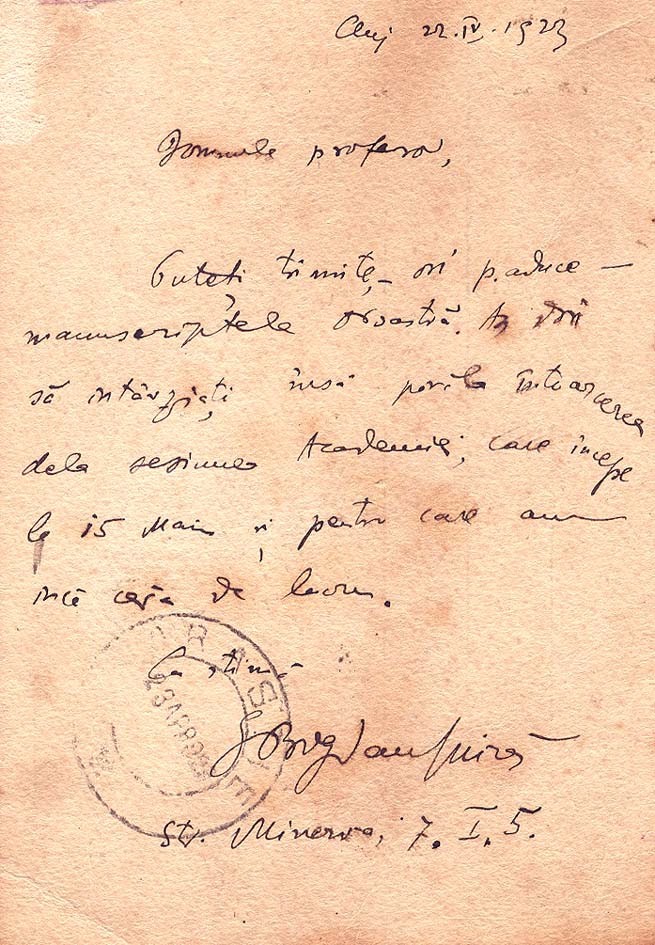 Cluj 22.IV.1923
Domnule profesor,
Puteți trimite, – ori p. aduce –
manuscriptele Dvoastră. Aș dori
să întârziați însă până la întoarcerea
dela sesiunea Academiei, care începe
la 15 Maiu și pentru care am
încă ceva de lucru.
Cu stimă
G Bogdan-Duică
Str. Minervei, 7. I. 5.
BRAȘOV
23 APR 923